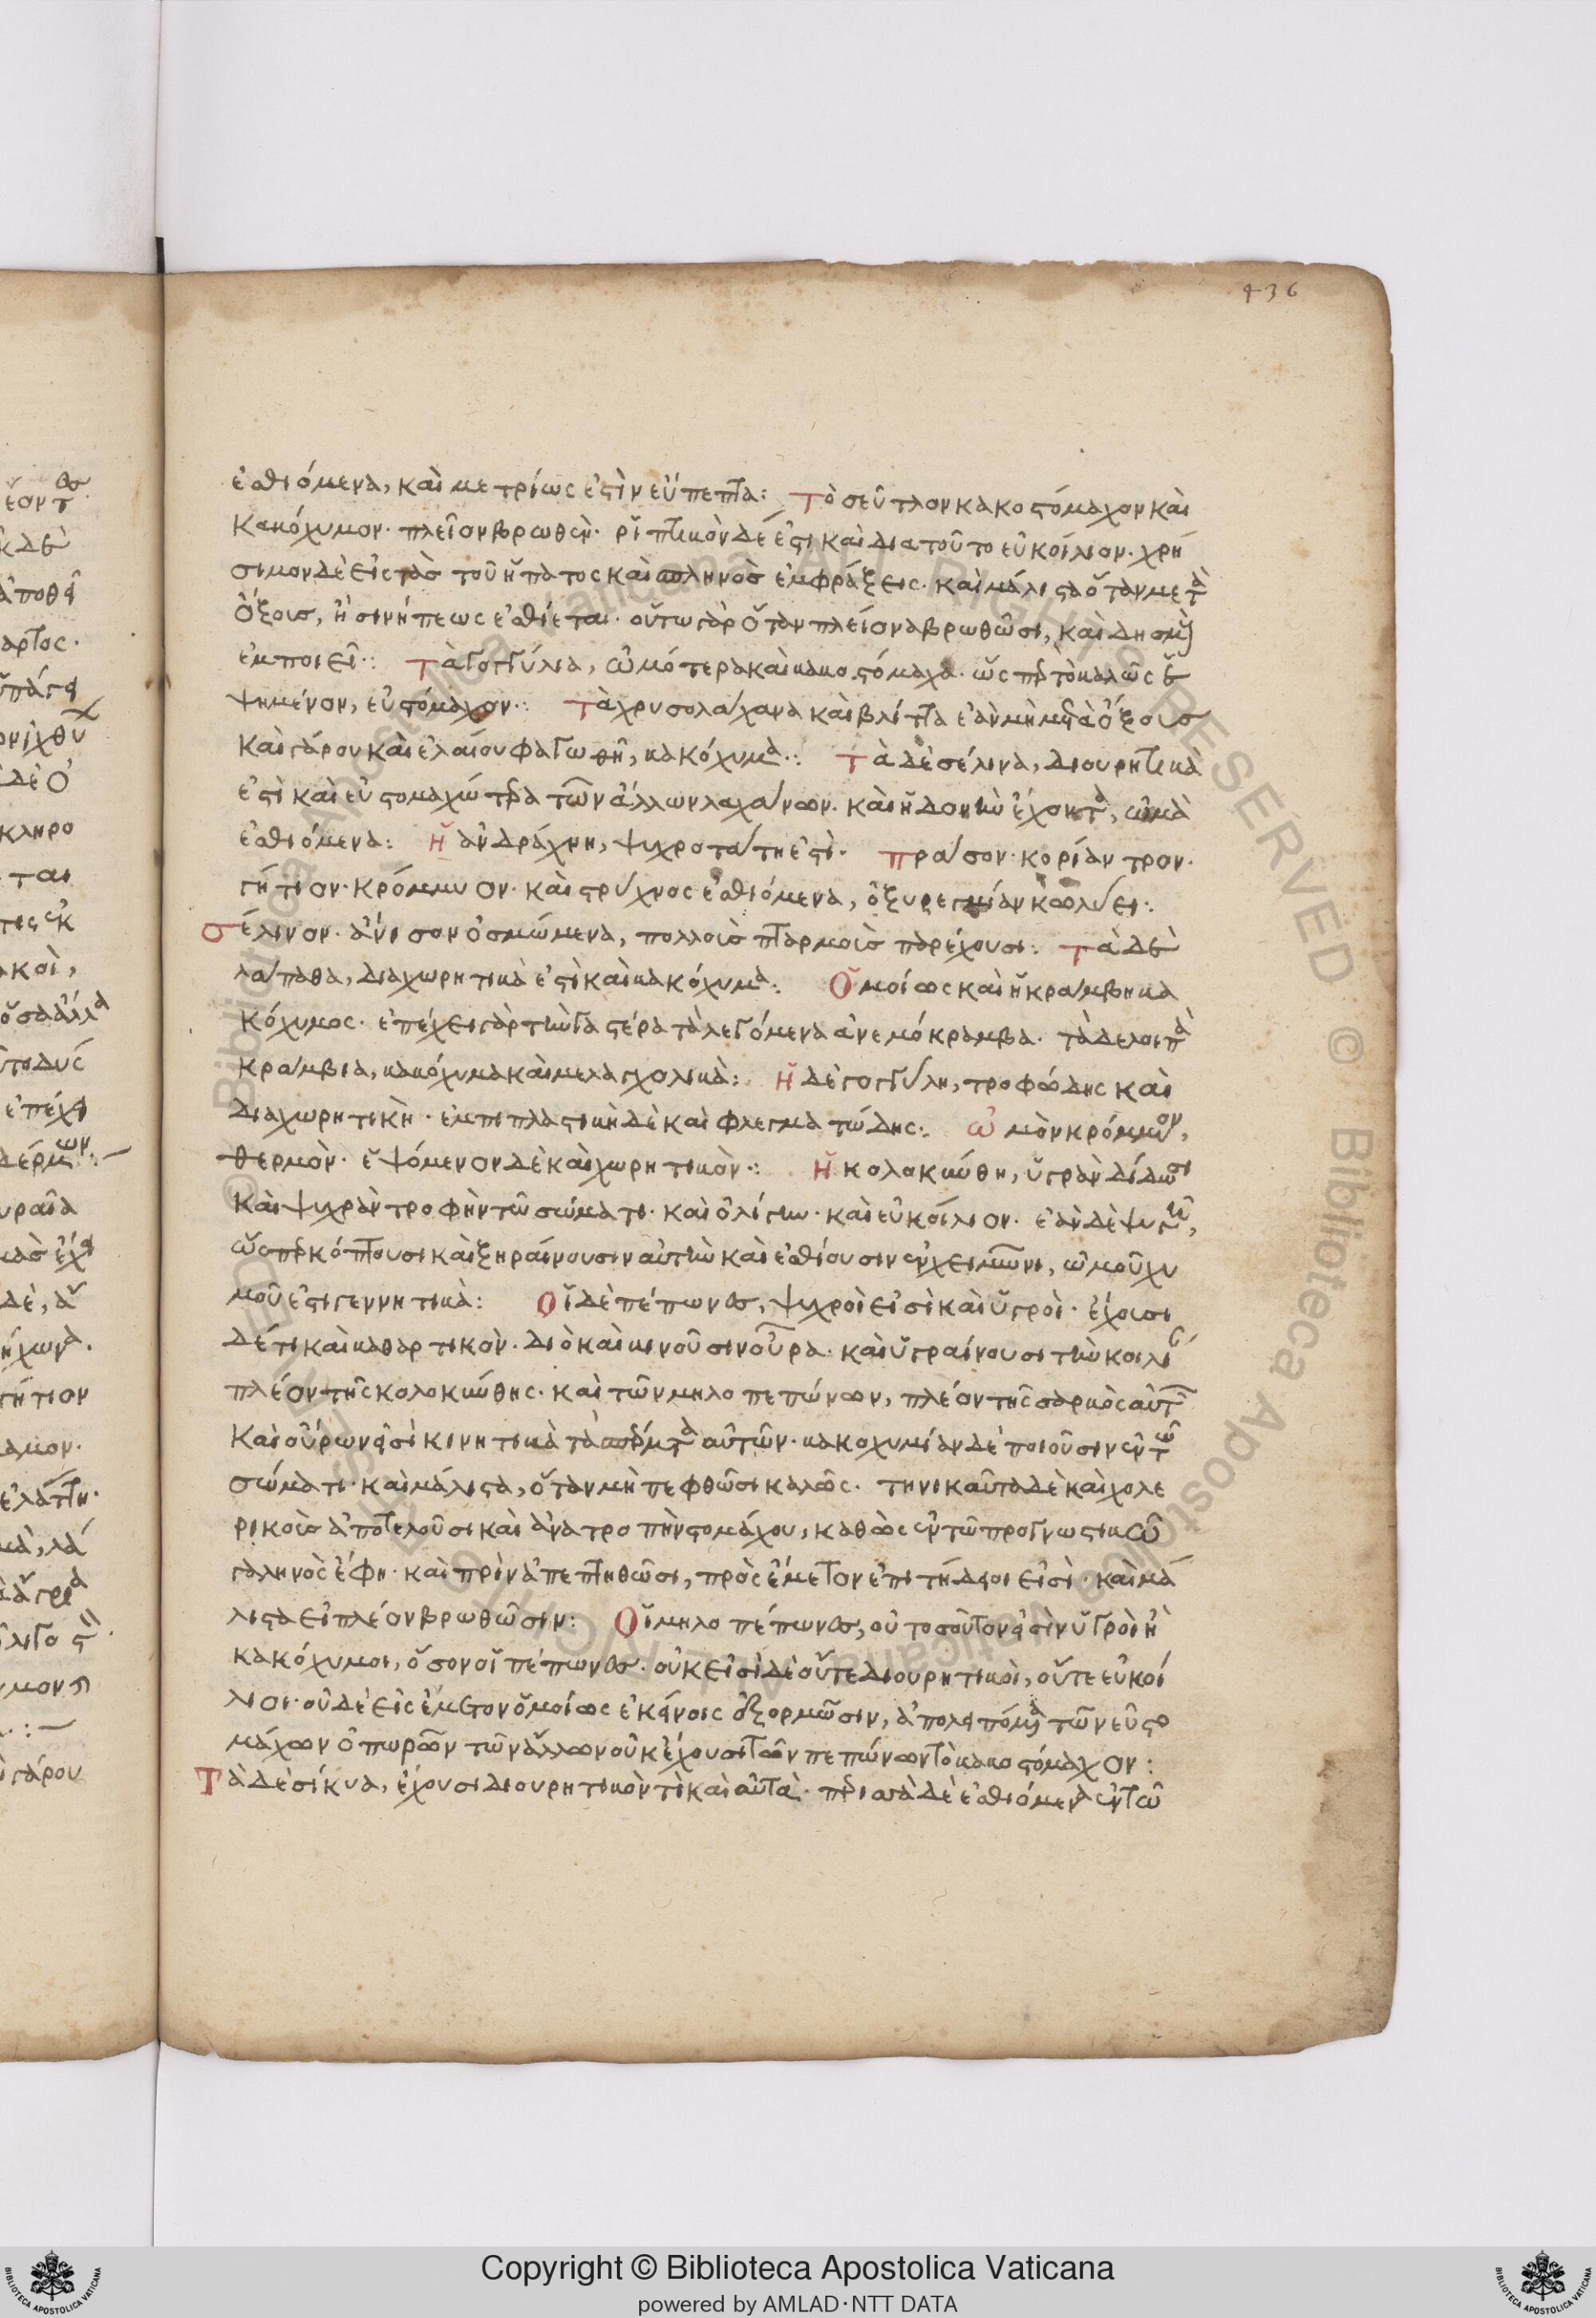 436
ἐσθιόμενα, καὶ μετρίως ἐστὶν εὔπεπτα: Τὸ σεῦτλον κακοστόμαχον καὶ
κακόχυμον· πλεῖον βρωθὲν· ῥϊπτικὸν δέ ἐστι καὶ διατοῦτο εὐκοίλιον· χρή
σιμον δὲ εἰς τὰσ τοῦ ἥπατος καὶ σπληνὸσ ἐμφράξεις· καὶ μάλιστα ὅταν μετὰ
ὄξους, ἢ σινήπεως ἐσθίεται· οὕτω γὰρ ὅταν πλείονα βρωθῶσι, καὶ δησμ
ἐμποιεῖ: Τὰ γογγύλια, ὠμότερα καὶ κακοστόμαχα· ὥσπερ τὸ καλῶς ἑ
ψημένον, εὐστόμαχον: Τὰ χρυσολάχανα καὶ βλίττα ἐὰν μὴ μετὰ ὄξουσ
καὶ γάρου καὶ ἐλαίου φαγωθῆ, κακόχυμα: Τὰ δὲ σέλινα, διουρητικὰ
ἐστὶ καὶ εὐστομαχώτερα τῶν ἄλλων λαχάνων· καὶ ἡδονὴν ἔχοντα, ὠμὰ
ἐσθιόμενα: Ἡ ἀνδράχνη, ψυχροτάτη ἐστὶ· Πράσον· κορίαντρον·
γήτιον· κρόμμυον· καὶ στρύχνος ἐσθιόμενα, ὀξυρεγμίαν κωλύει:
Σέλινον· ἄνισον ὀσμώμενα, πολλοὶσ πταρμοὶσ παρέχουσι: Τὰ δὲ
λάπαθα, διαχωρητικὰ ἐστὶ καὶ κακόχυμα: Ὁμοίως καὶ ἡ κράμβη κα
κόχυμος· ἐπέχει γὰρ τὴν γαστέρα τὰ λεγόμενα ἀνεμόκραμβα· τὰ δε λοιπὰ
κράμβια, κακόχυμα καὶ μελαγχολικὰ: Ἡ δὲ γογγύλη, τροφώδης καὶ
διαχωρητικὴ· ἐμπιπλαστικὴ δὲ καὶ φλεγματώδης: Ὠμὸν κρόμμυον,
θερμὸν· ἑψόμενον δὲ καὶ χωρητικὸν: Ἡ κολοκύνθη, ὑγρὰν δίδωσι
καὶ ψυχρὰν τροφὴν τῶ σώματι· καὶ ὀλίγην· καὶ εὐκοίλιον· ἐὰν δὲ ψυγῆ,
ὥσπερ κόπτουσι καὶ ξηραίνουσιν αὐτὴν καὶ ἐσθίουσιν ἐν χειμῶνι, ὠμοῦ χυ
μοῦ ἐστι γεννητικὰ: Οἱ δὲ πέπωνες, ψυχροὶ εἰσὶ καὶ ὑγροὶ· ἔχουσι
δέ τι καὶ καθαρτικὸν· διὸ καὶ κινοῦσιν οὖρα· καὶ ὑγραίνουσι τὴν κοιλί
πλέον τῆς κολοκύνθης· καὶ τῶν μηλοπεπώνων, πλέον τῆς σαρκὸς αὐτ
καὶ οὔρων εἰσὶ κινητικὰ τὰ σπέρματα αὐτῶν· κακοχυμίαν δὲ ποιοῦσιν ἐν τῶ
σώματι· καὶ μάλιστα, ὅταν μὴ πεφθῶσι καλῶς· τηνικαῦτα δὲ καὶ χολε
ρικοὶσ ἀποτελοῦσι καὶ ἀνατροπὴν στομάχου, καθὼς ἐν τῶ προγνωστικῶ
γαληνὸς ἔφη· καὶ πρὶν ἀπεπτηθῶσι, πρὸς ἔμετον ἐπιτήδειοι εἰσὶ· καὶ μά
λιστα εἰ πλέον βρωθῶσιν: Οἱ μηλοπέπωνες, οὐ τοσοῦτον εἰσὶν ὑγροὶ ἢ
κακόχυμοι, ὅσον οἱ πέπωνες· οὐκ εἰσὶ δὲ οὔτε διουρητικοὶ, οὔτε εὐκοί
λιοι· οὐδὲ εἰς ἔμετον ὁμοίως ἐκείνοις ἐξορμῶσιν, ἀπολειπόμενα τῶν εὐστο
μάχων ὀπωρῶν τῶν ἄλλων οὐκ ἔχουσι τῶν πεπώνων τὸ κακοστόμαχον:
Τὰ δὲ σίκυα, ἔχουσι διουρητικὸν τὶ καὶ αὐτὰ· περισσὰ δὲ ἐσθιόμενα ἐν τῶ
Copyright © Biblioteca Apostolica Vaticana
powered by AMLAD·NTT DATA